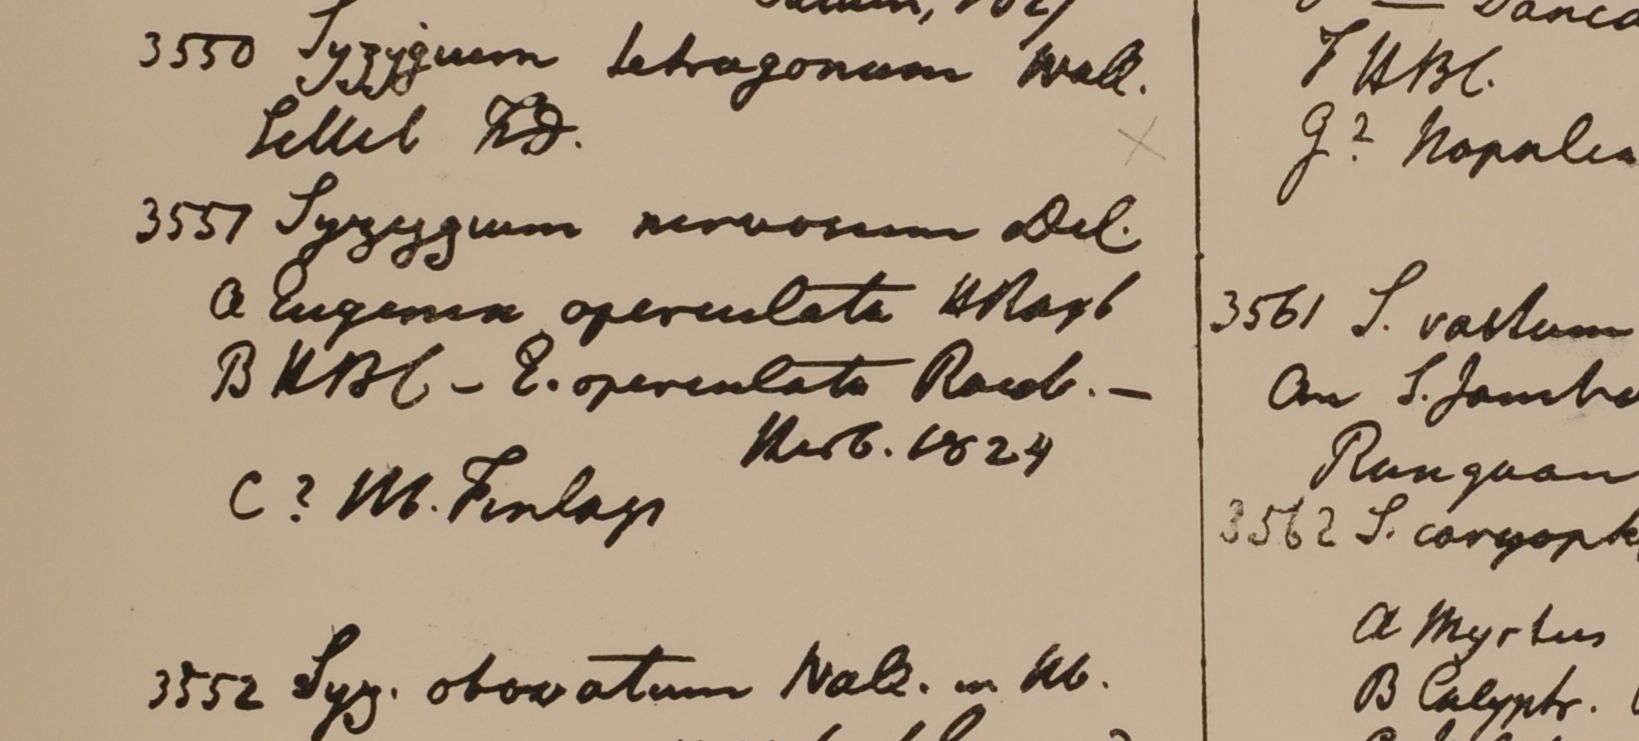 3550 Syzygium tetragonum Wall.
Sillet F.D.
3551 Syzygium nervosum Del.
a Eugenia operculata HRoxb
B HBC - E. operculata Roxb. -
Herb. 1824
C? Hb. Finlays
3552 Syz. obovatum Wall. in Hb.
F HBC.
G? Napalia
3561 S. vastum
An S. Jambo
Rangoon
3562 S. caryoph
a Myrtus
B Calyptr.